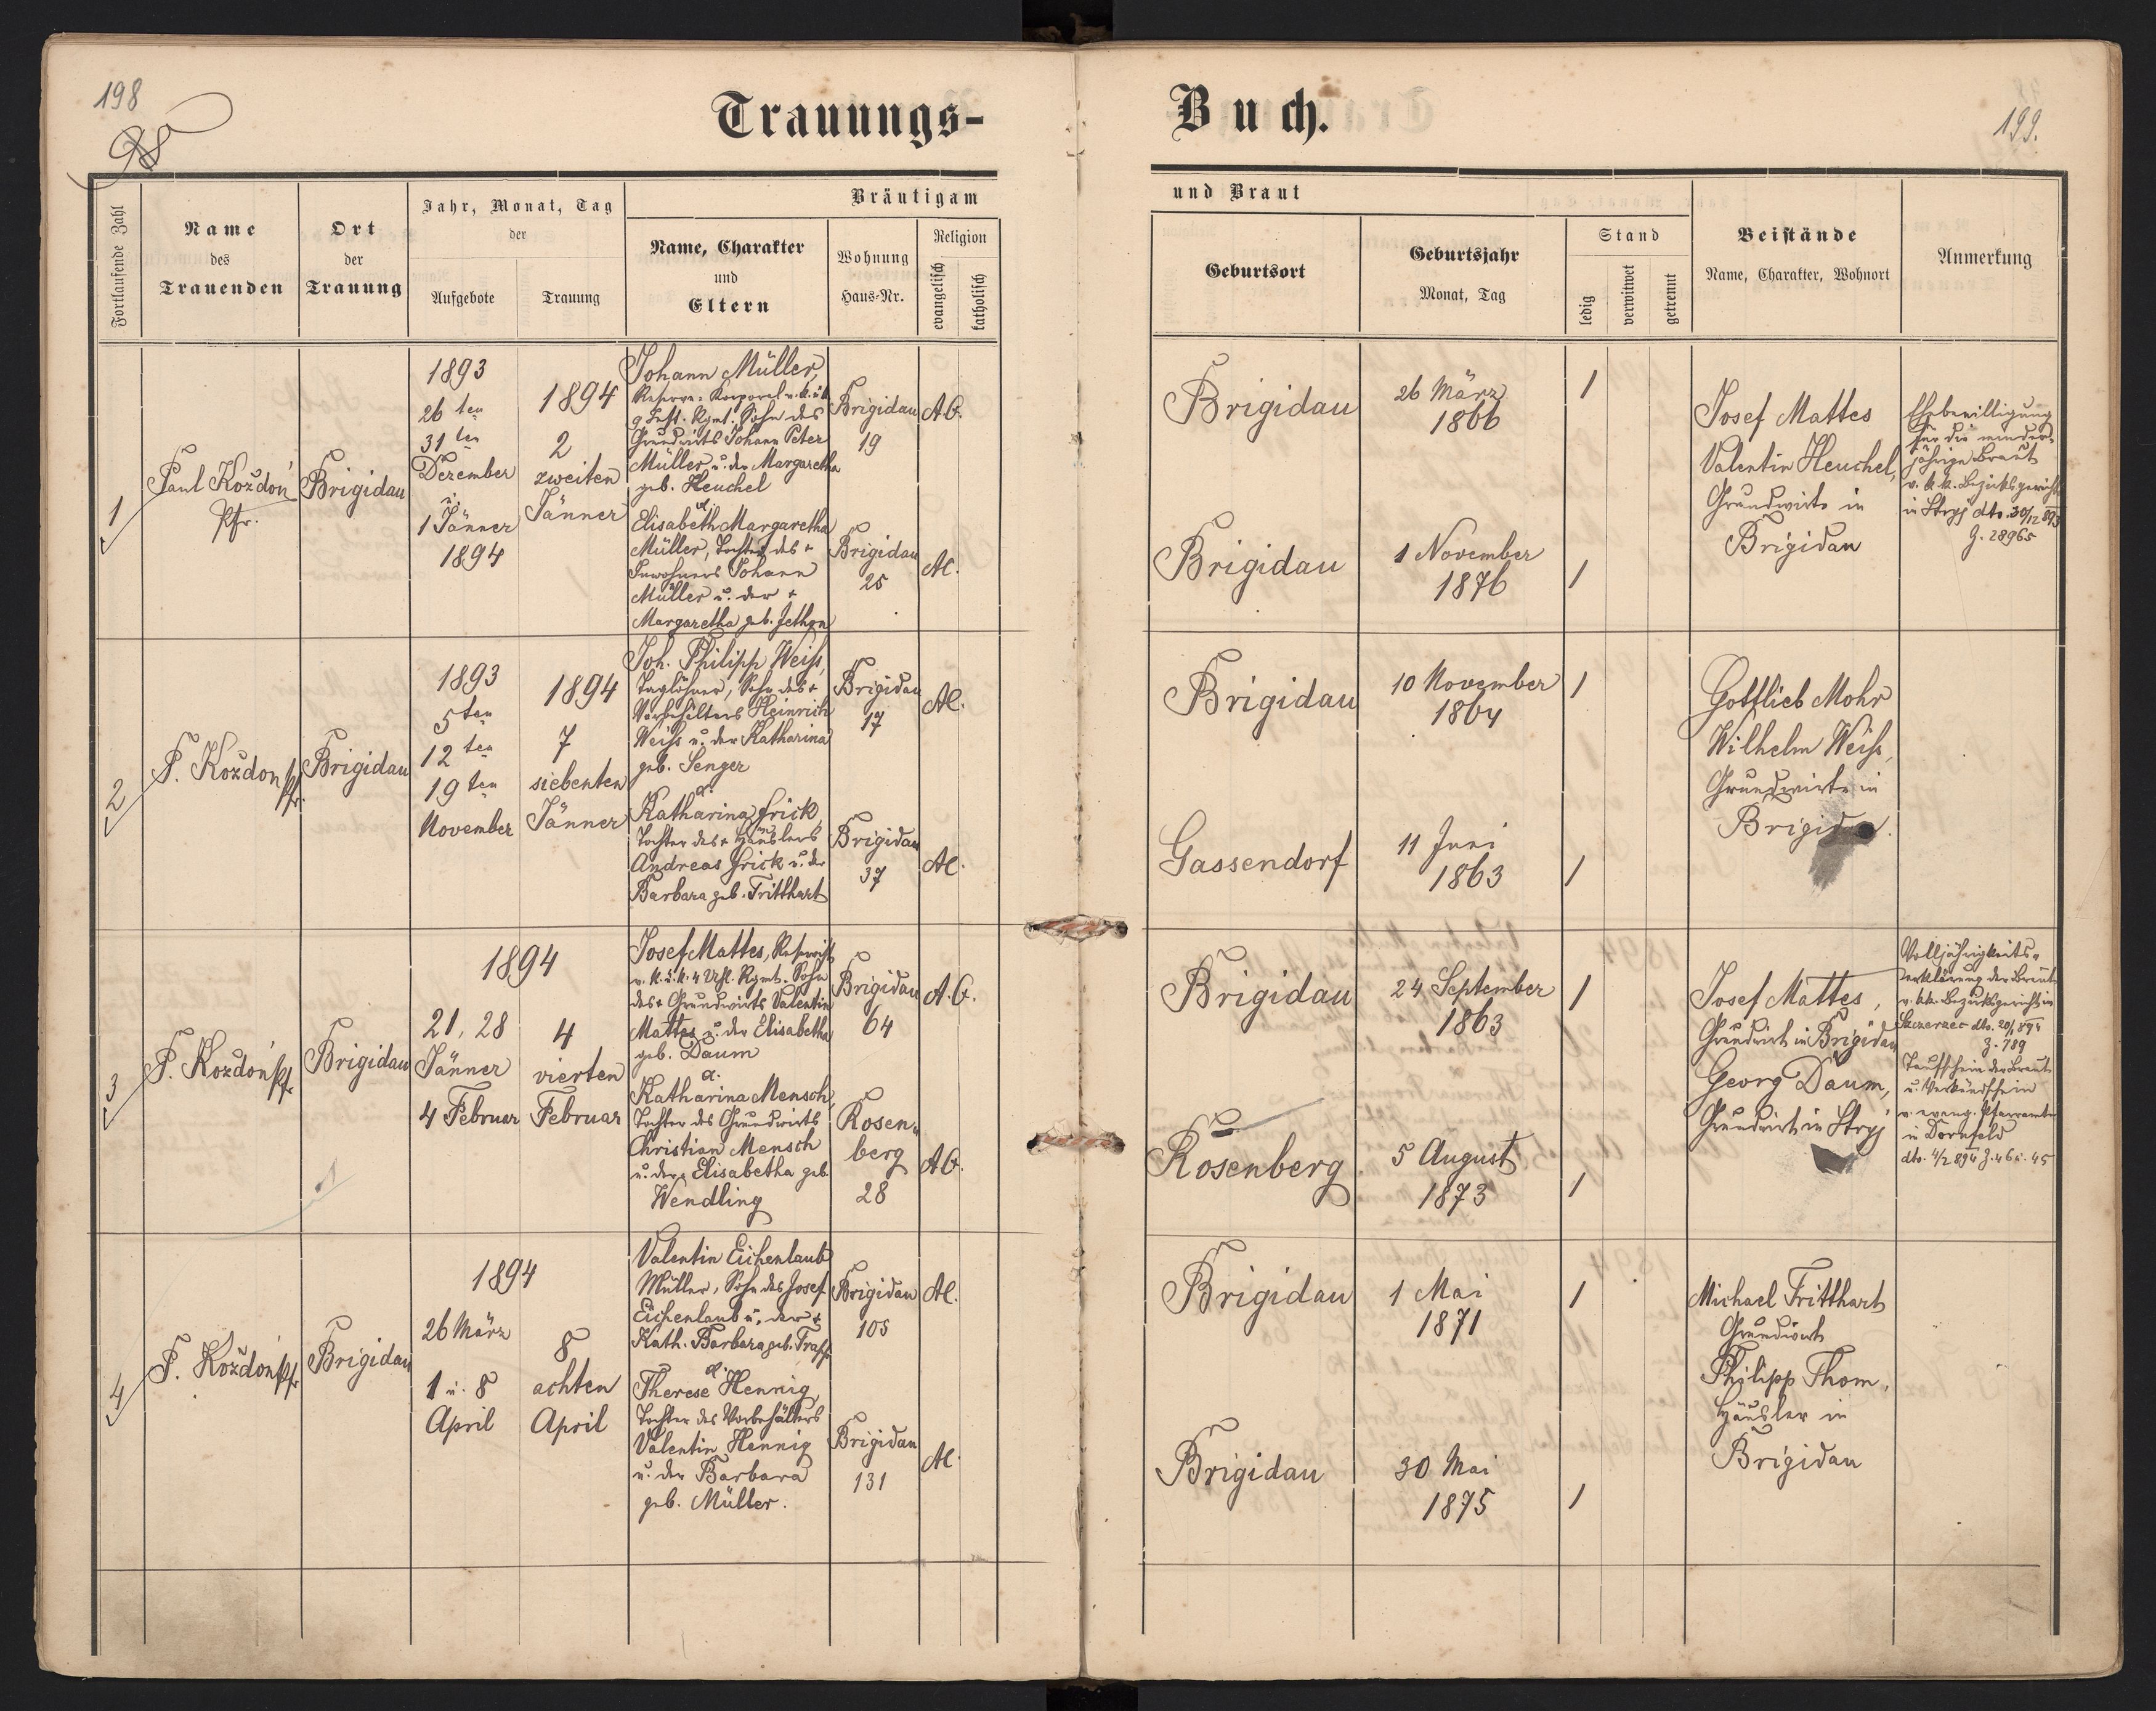 198
98
Trauungs-
Fortlaufende Zahl
Name
des
Trauenden
Ort
der
Trauung
Jahr, Monat, Tag
der
Aufgebote
Trauung
Bräutigam
Name, Charakter
und
Eltern
Wohnung
Haus-Nr.
Religion
evangelisch
katholisch
1
Paul Kozdoń
Pfr.
Brigidau
1893
26 ten
31 ten
Dezember
u.
1 Jänner
1894
1894
2
zweiten
Jänner
Johann Müller,
Reserve-Korporal v. k. u. k.
9 Inft. Rgmt. Sohn des
Grundwirts Johann Peter
Müller u. der Margaretha
geb. Heuchel
Elisabeth Margaretha
Müller, Tochter des +
Inwohners Johann
Müller u. der +
Margaretha geb. Jethon
Brigidau
19
A. C.
Brigidau
25
AC.
2
P. Kozdoń Pfr.
Brigidau
1893
5 ten
12 ten
19 ten
November
1894
7
siebenten
Jänner
Joh. Philipp Weiss,
Taglöhner, Sohn des +
Vorbehälters Heinrich
Weiss u. der Katharina
geb. Senger
Katharina Frick,
Tochter des + Häuslers
Andreas Frick u. der
Barbara geb. Tritthart
Brigidau
17
AC.
Brigidau
37
AC.
3
P. Kozdoń Pfr.
Brigidau
1894
21, 28
Jänner
4 Februar
4
vierten
Februar
Josef Mattes, Reservist
v. k. u. k. 4 Uhl. Rgmt. Sohn
des + Grundwirts Valentin
Mattes u. der Elisabetha
geb. Daum
Katharina Mensch,
Tochter des Grundwirts
Christian Mensch
u. der Elisabetha geb.
Wendling
Brigidau
64
A. C.
Rosen-
berg
28
A C.
4
P. Kozdoń Pfr.
Brigidau
1894
26 März
1 u. 8
April
8
achten
April
Valentin Eichenlaub
Müller, Sohn des Josef
Eichenlaub u. der +
Kath. Barbara geb.
Therese Hennig,
Tochter des Vorbehälters
Valentin Hennig
u. der Barbara
geb. Müller.
Brigidau
105
AC.
Brigidau
131
AC.
Buch.
199.
und Braut
Geburtsort
Geburtsjahr
Monat, Tag
Stand
ledig
verwitwet
getrennt
Beistände
Name, Charakter, Wohnort
Anmerkung
Brigidau
26 März
1866
1
Brigidau
1 November
1876
1
Josef Mattes
Valentin Heuchel,
Grundwirte in
Brigidau
Ehebewilligung
für die minder-
jährige Braut
v. k. k. Bezirksgericht
in Stryj dto. 30/12 893
Z. 28965
Brigidau
10 November
1864
1
Gassendorf
11 Juni
1863
1
Gottlieb Mohr
Wilhelm Weiss,
Grundwirte in
Brigidau.
Brigidau
24 September
1863
1
Rosenberg
5 August
1873
1
Josef Mattes,
Grundwirt in Brigidau
Georg Daum,
Grundwirt in Stryj
Volljährigkeits-
erklärung der Braut
v. k.k. Bezirksgericht in
Szczerzec dto. 20/1 894
Z. 789
Taufschein der Braut
u. Verkündschein
v. evang. Pfarramte
in Dornfeld
dto. 4/2 894 Z. 46 u. 45
Brigidau
1 Mai
1871
1
Brigidau
30 Mai
1875
1
Michael Tritthart
Grundwirt
Philipp Thom,
Häusler in
Brigidau